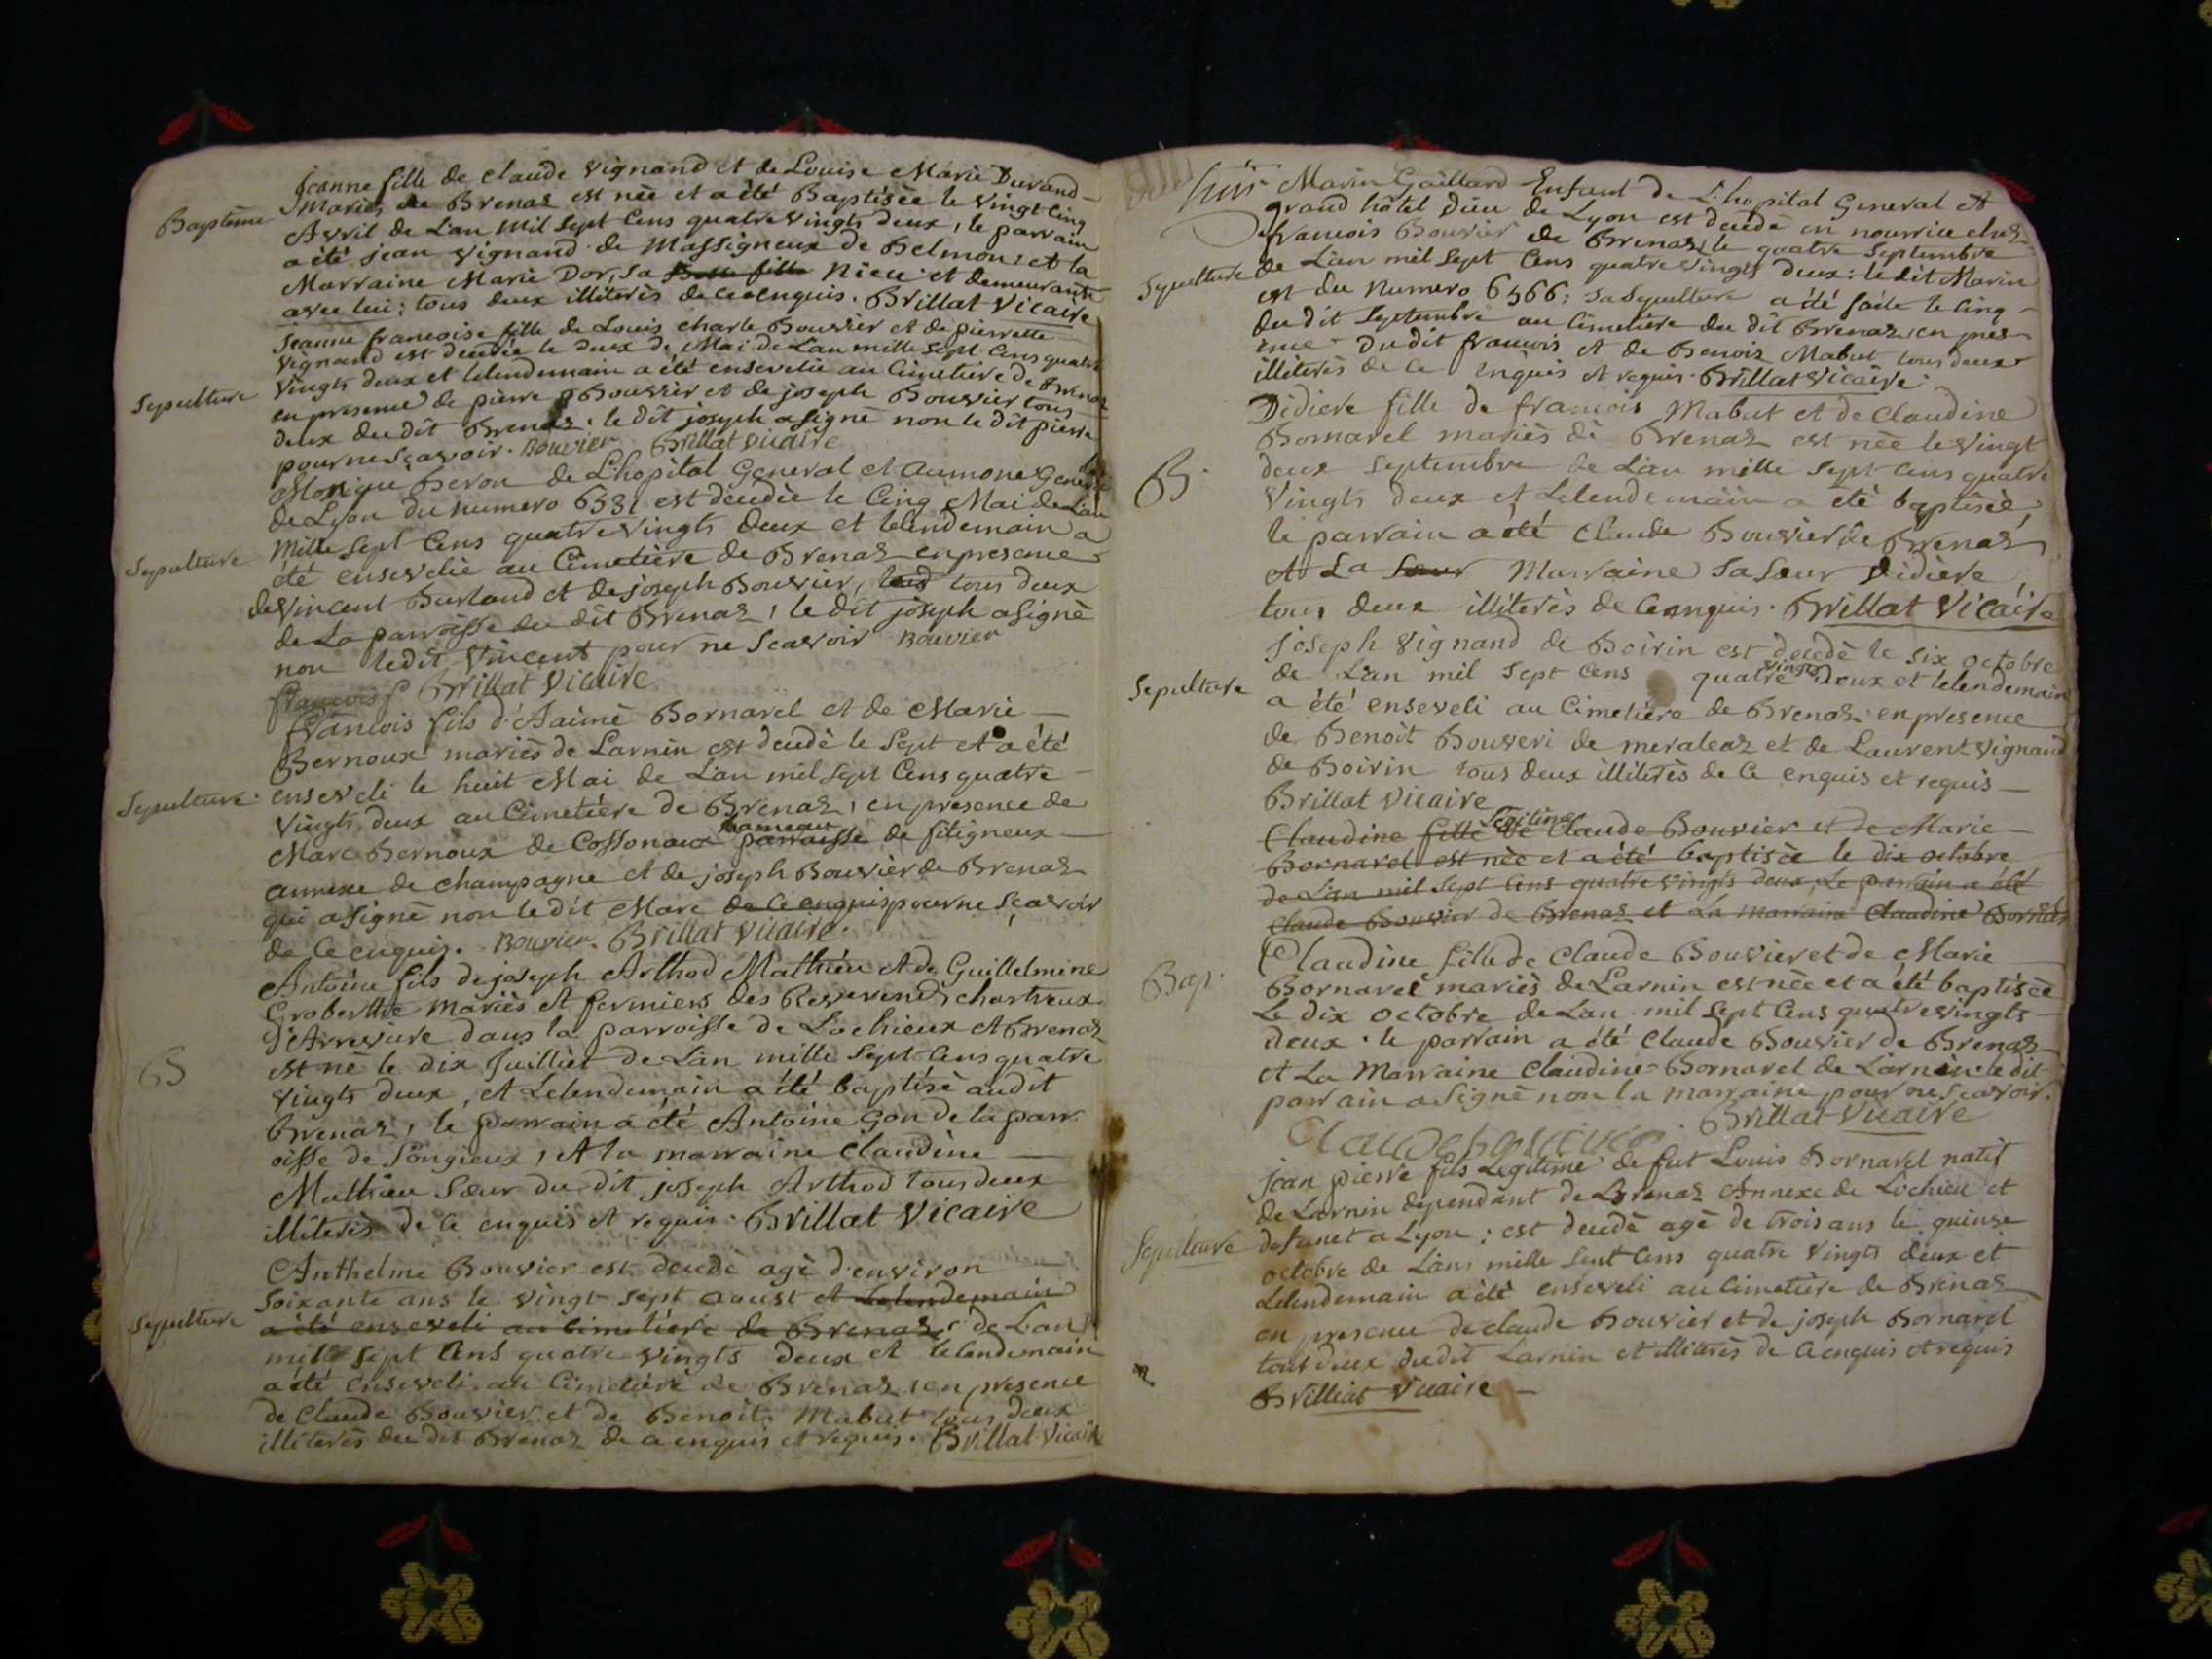 Jeanne fille de claude vignand et de Louise Marie Durand
Baptême
Mariés de Brenaz est née et a été Baptisée le vingt cinq
Avril de L'an Mil Sept Cens quatre vingts deux, le parrain
a été jean vignand de Massigneux de Belmon; et la
Marraine Marie Dor, sa Belle fille Niece et demeurante
avec lui; tous deux illiterés de ce enquis. Brillat Vicaire
Jeanne francoise fille de Louis charle Bouvier et de pierrette
vignand est decedée le deux de Mai de L'an mille sept Cens quatre
Sepulture
vingts deux et lelendemain a été ensevelie au Cimetiere de Brenaz
en presence de pierre Bouvier et de joseph Bouvier tous
deux du dit Brenaz. le dit joseph a signé non le dit pierre
pour ne sçavoir. Bouvier Brillat vicaire
Monique Beron de L'hopital General et aumone Generale
de Lyon du numero 6531 est decedée le Cinq Mai de L'an
Mille sept Cens quatre vingts deux et lelendemain a
Sepulture
été ensevelie au Cimetiere de Brenaz en presence
de vincent Burland et de joseph Bouvier, tous deux
de La parroisse du dit Brenaz, le dit joseph a signé
non ledit vincent pour ne scavoir Bouvier
francois f Brillat Vicaire
francois fils d'Aaimé Bornarel et de Marie
Bernoux mariés de Larnin est decedé le sept et a été
Sepulture
enseveli le huit Mai de L'an mil sept Cens quatre
vingts deux au Cimetiere de Brenaz, en presence de
hameau
Marc Bernoux de Cossonaux parroisse de fitigneux
annexe de champagne et de joseph Bouvier de Brenaz
qui a signé non le dit Marc de ce enquis pour ne sçavoir
de ce enquis. Bouvier. Brillat vicaire.
Antoine fils de joseph Arthod Mathieu et de Guillelmine
Groberttte Mariés et fermiers des Reverends chartreux
d'Arrevire dans la parroisse de Lochieux et Brenaz
B
est né le dix Juilliet de L'an mille sept Cens quatre
vingts deux, et Lelendemain a été baptisé au dit
Brenaz, le parrain a été Antoine Gon de la parr
oisse de Songieux, et la marraine Claudine
Mathieu sœur du dit joseph Arthod tous deux
illiterés de ce enquis et requis. Brillat Vicaire
Anthelme Bouvier est decedé agé d'environ
soixante ans le vingt sept aoust et Lelendemain
Sepulture
a été enseveli au Cimetiere de Brenaz de L'an
mille sept Cens quatre vingts deux et lelendemain
a été enseveli au Cimetiere de Brenaz, en presence
de Claude Bouvier et de Benoit Mabut tous deux
illiterés du dit Brenaz de ce enquis et requis. Brillat Vicaire
Marin Gaillard Enfant de L'hopital General et
grand hôtel Dieu de Lyon est decedé en nourrice chez
francois Bouvier de Brenaz, le quatre Septembre
Sepulture
de L'an mil sept Cens quatre vingts deux: le dit Marin
est du Numero 6566; sa Sepulture a été faite le Cinq
du dit Septembre au Cimetiere du dit Brenaz, en pres
ence du dit francois et de Benoiz Mabut tous deux
illiterés de ce enquis et requis. Brillat Vicaire
Didiere fille de francois Mabut et de Claudine
Bornarel mariés de Brenaz est née le vingt
B.
deux Septembre de L'an mille sept Cens quatre
vingts deux et Lelendemain a été baptisée
le parrain a été Claude Bouvier de Brenaz
et La sœur Marraine Sa Sœur Didiere,
tous deux illiterés de ce enquis. Brillat Vicaire
Joseph Vignand de Boirin est decedé le six octobre
vingts
Sepulture
de L'an mil sept Cens quatre Deux et lelendemain
a été enseveli au Cimetiere de Brenaz en presence
de Benoit Bouveri de meraleaz et de Laurent Vignand
de Boirin tous deux illiterés de ce enquis et requis
Brillat Vicaire
Legitime
Claudine fille de Claude Bouvier et de Marie
Bornarel est née et a été baptisée le dix octobre
de L'an mil sept Cens quatre vingts deux, Le parrain a été
Claude Bouvier de Brenaz et La marraine Claudine Bornar
Claudine fille de Claude Bouvier et de Marie
Bap.
Bornarel mariés de Larnin est née et a été baptisée
Le dix octobre de L'an mil sept Cens quatre vingts
deux. le parrain a été Claude Bouvier de Brenaz
et La Marraine Claudine Bornarel de Larnin. le dit
parrain a signé non la marraine pour ne scavoir.
Brillat Vicaire
jean pierre fils Legitime de fut Louis Bornarel natif
de Larnin dependant de Brenaz Annexe de Lochieu et
Sepulture
defunct a Lyon; est decedé agé de trois ans le quinze
octobre de L'an mille sept Cens quatre vingts deux et
Lelendemain a été enseveli au Cimetiere de Brenaz
en presence de claude Bouvier et de joseph Bornarel
tous deux du dit Larnin et illiterés de ce enquis et requis
Brilliat Vicaire